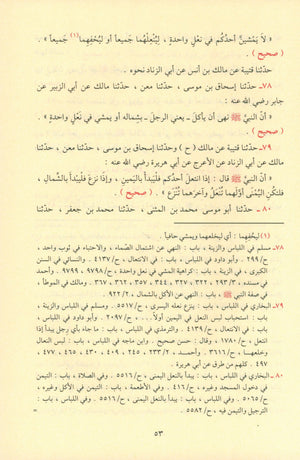 « لاَ يَمْشِيَنَّ أحدُكُم في نَعْلٍ واحدةٍ، لِيُنْعِلْهُما جَميعاً أو ليُحْفِهما(١) جَميعاً » .
( صحيح ) .
حدّثنا قتيبة عن مالك بن أنس عن أبي الزناد نحوه .
٧٨ـ حدّثنا إسحاق بن موسى ، حدّثنا معن ، حدّثنا مالك عن أبي الزبير عن
جابر رضي الله عنه :
« أنّ النبيَّ ﷺ نهى أن يأكلَ ـ يعني الرجلَ ـ بِشِمالِه أو يمشي في نَعْلٍ واحدةٍ » .
( صحيح ) .
٧٩ـ حدّثنا قتيبة عن مالك ( ح ) وحدّثنا إسحاق بن موسى ، حدّثنا معن ، حدّثنا
مالك عن أبي الزناد عن الأعرج عن أبي هريرة رضي الله عنه :
« أنّ النبيَّ ﷺ قال : إذا انتعلَ أحدُكم فَلْيَبدأ باليَمينِ ، وإذا نَزعَ فَلْيبدأ بالشّمالِ ،
فلتَكُنِ اليُمْنَى أوَّلَهما تُنْعَلُ وآخرَهما تُنْزَع » . ( صحيح ) .
٨٠ـ حدّثنا أبو موسى محمد بن المثنى ، حدّثنا محمد بن جعفر ، حدّثنا
(١) ليُحْفِهما : أي ليخلعهما ويمشي حافياً .
٧٨ـ مسلم في اللباس والزينة ، باب : النهي عن اشتمال الصّمّاء ، والاحتباء في ثوب واحد ،
ح/٢٩٩ . وأبو داود في اللباس ، باب : في الانتعال ، ح/٤١٣٧ . والنسائي في السنن
الكبرى ، في الزينة ، باب : كراهية المشي في نعل واحدة ، ح/٩٧٩٨ و ٩٧٩٩ . وأحمد
في مسنده ، ٢٩٣/٣ ، ٣٢٢ ، ٣٢٧ ، ٣٤٤ ، ٣٥٧ ، ٣٦٢ ، ٣٦٧ . ومالك في الموطأ ،
في صفة النبي ﷺ ، باب : النهي عن الأكل بالشمال ، ٩٢٢/٢ .
٧٩ـ البخاري في اللباس ، باب : ينزع نعله اليسرى ، ح/٥٥١٧ . ومسلم في اللباس والزينة ،
باب : استحباب لبس النعل في اليمين أولاً . . . ، ح/٢٠٩٧ . وأبو داود في اللباس ،
باب : في الانتعال ، ح/٤١٣٩ . والترمذي في اللباس ، باب : ما جاء بأي رجل يبدأ إذا
انتعل ، ح/١٧٨٠ ، وقال : حسن صحيح . وابن ماجه في اللباس ، باب : لبس النعال
وخلعهـا ، ح/٣٦١٦ . وأحمـد ، ٢٣٣/٢ ، ٢٤٥ ، ٤٠٩ ، ٤٣٠ ، ٤٦٥ ، ٤٧٧ ،
٤٩٧ . كلهم من طرق عن أبي هريرة .
٨٠ـ البخاري في اللباس ، باب : يبدأ بالنعل اليمنى ، ح/٥٥١٦ . وفي الصلاة ، باب : التيمن
في دخول المسجد وغيره ، ح/٤١٦ . وفي الأطعمة ، باب : التيمن في الأكل وغيره ،
ح/٥٠٦٥ . وفي اللباس ، باب : يبدأ بالنعل اليمنى ، ح/٥٥١٦ . وفي اللباس ، باب :
الترجيل والتيمن فيه ، ح/٥٥٨٢ .
=
٥٣